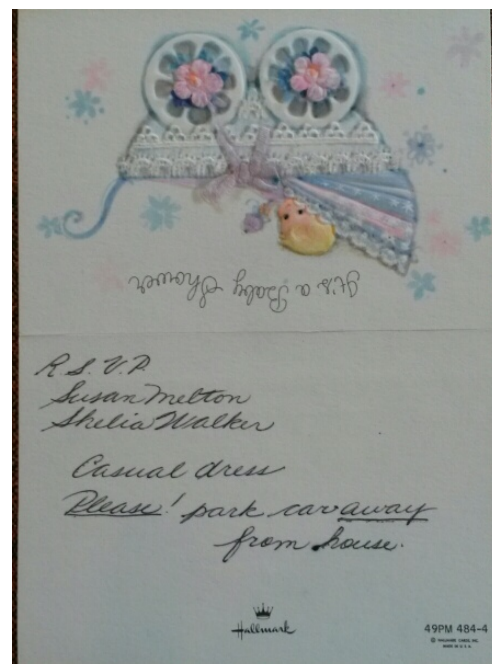 It's a Baby Shower
R.S.V.P.
Susan Melton
Shelia Walker
Casual dress
Please! park car away
from house.
Hallmark
49PM 484-4
© HALLMARK CARDS, INC.
MADE IN U.S.A.